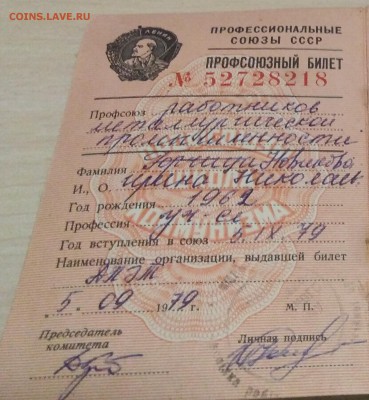 COINS.LAVE.RU
ЛЕНИН
ПРОФЕССИОНАЛЬНЫЕ
СОЮЗЫ СССР
ПРОФСОЮЗНЫЙ БИЛЕТ
№ 52728218
Профсоюз работников
металлургической
промышленности
Фамилия
И., О. Ирина Николаев.
Год рождения 1962
Профессия уч-ся
Год вступления в союз 5.IX 79
Наименование организации, выдавшей билет
5. 09 1979 г. М. П.
Председатель Личная подпись
комитета